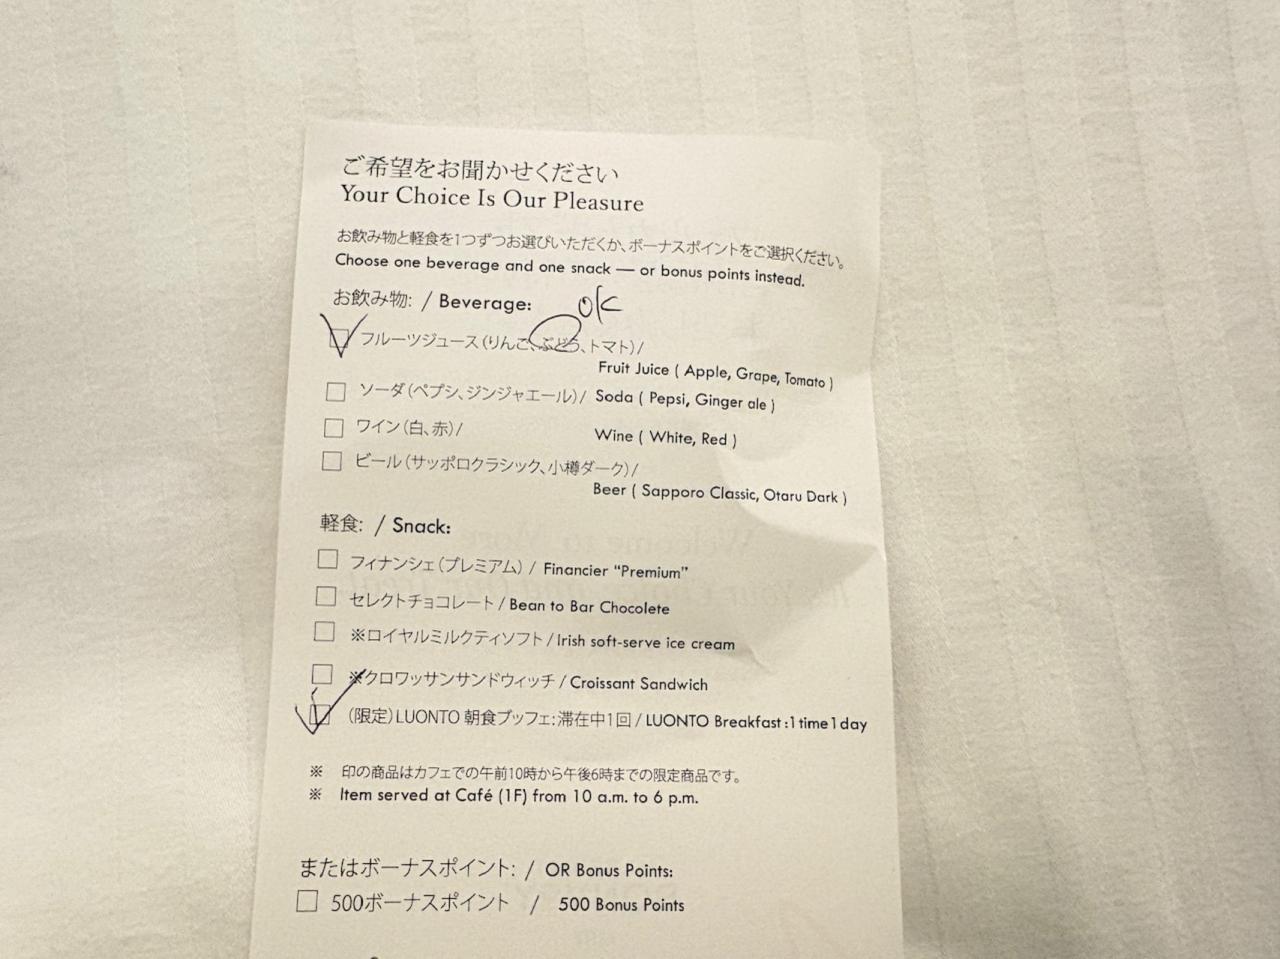 ご希望をお聞かせください
Your Choice Is Our Pleasure
お飲み物と軽食を1つずつお選びいただくか、ボーナスポイントをご選択ください。
Choose one beverage and one snack — or bonus points instead.
お飲み物: / Beverage: ok
フルーツジュース(りんご、ぶどう、トマト)/
Fruit Juice ( Apple, Grape, Tomato )
ソーダ(ペプシ、ジンジャエール)/ Soda ( Pepsi, Ginger ale )
ワイン(白、赤)/ Wine ( White, Red )
ビール(サッポロクラシック、小樽ダーク)/
Beer ( Sapporo Classic, Otaru Dark )
軽食: / Snack:
フィナンシェ(プレミアム) / Financier “Premium”
セレクトチョコレート / Bean to Bar Chocolete
※ロイヤルミルクティソフト / Irish soft-serve ice cream
※クロワッサンサンドウィッチ / Croissant Sandwich
(限定)LUONTO 朝食ブッフェ:滞在中1回 / LUONTO Breakfast :1 time 1 day
※ 印の商品はカフェでの午前10時から午後6時までの限定商品です。
※ Item served at Café (1F) from 10 a.m. to 6 p.m.
またはボーナスポイント: / OR Bonus Points:
500ボーナスポイント / 500 Bonus Points